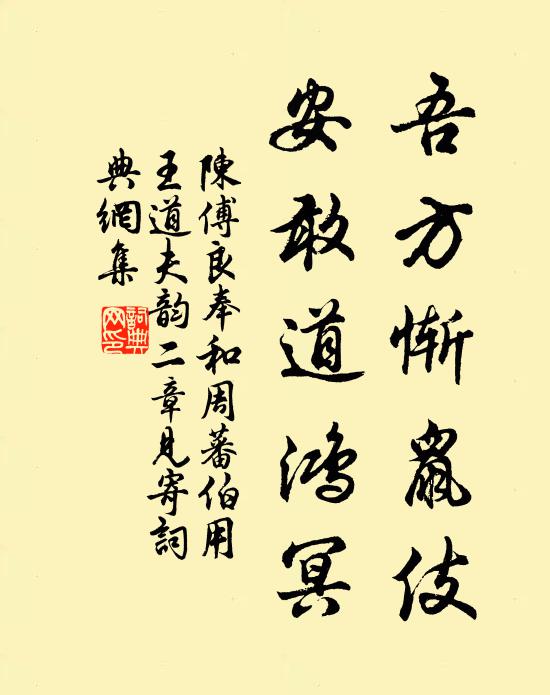 吾方慚鼠伎
安敢道鴻冥
陳傅良奉和周蕃伯用
王道夫韵二章見寄詞
典網集
詞典網印